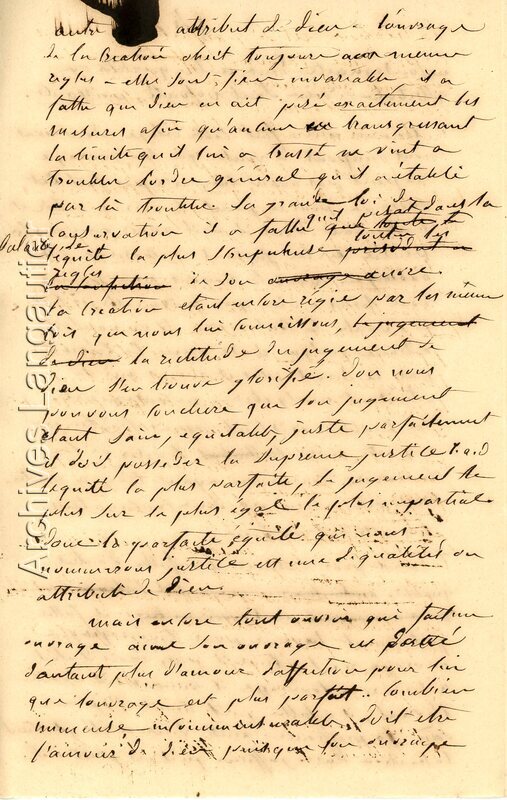 autre attribut de Dieu - l'ouvrage
de la Création obéit toujours aux meme
regles - elle sont, bien invariable il a
fallu que Dieu en ait pésé exactement les
mesures afin qu'aucune transgressant
la limite qu'il lui a trassé ne vint a
troubler l'ordre général qu'il a établi
par la trouble. La grande loi de
Conservation il a fallu qu'il pesat dans la
Balance de
l'equité la plus scrupuleuse toutes les
regles de son
la Création etant encore régie par les meme
lois que nous lui connaissons, le jugement
de Dieu la rectitude du jugement de
Dieu s'en trouve glorifié. Donc nous
pouvons conclure que son jugement
étant sain, equitable, juste parfaitement
il doit posseder la supreme justice c.a.d
l'equité la plus parfaite, le jugement le
plus sur le plus égal le plus impartial.
donc la parfaite équité que nous
nommons justice est une de qualités ou
attribut de Dieu
mais encore tout ouvrier qui fait un
ouvrage aime son ouvrage et
d'autant plus d'amour d'affection pour lui
que l'ouvrage est plus parfait.. Combien
immense, incommensurable doit etre
l'amour de Dieu puisque son ouvrage
Archives Langautier